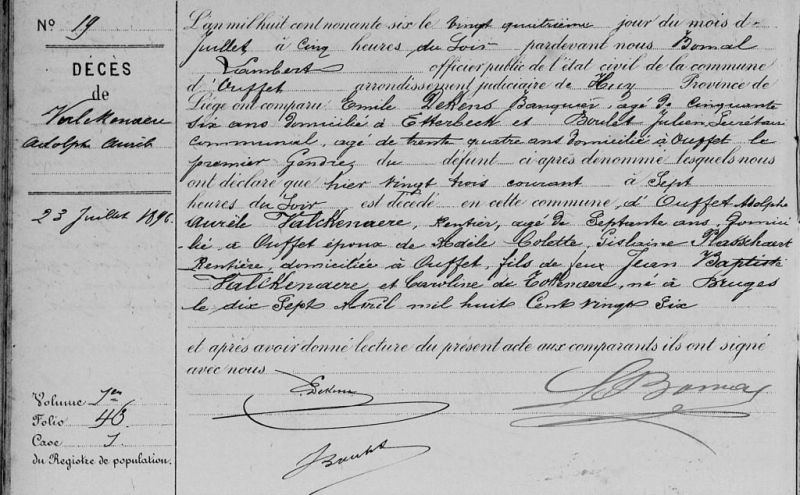 N° 19
DÉCÈS
de
Valckenaere
Adolph Aurèle
23 Juillet 1896.
Volume 1er
Folio 46
Case 1
du Registre de population.
L'an mil huit cent nonante six le vingt quatrième jour du mois d-
juillet à cinq heures du soir pardevant nous Bomal
Lambert officier public de l'état civil de la commune
d'Ouffet arrondissement judiciaire de Huy Province de
Liége ont comparu Emile Dekens Banquier, agé de Cinquante
six ans domicilié à Etterbeck et Boulet Julien Secrétaire
communal, agé de trente quatre ans domicilié à Ouffet le
premier Gendre du défunt ci après denommé lesquels nous
ont déclaré que hier vingt trois courant à Sept
heures du soir est décédé en cette commune, d'Ouffet Adolphe
Aurèle Valckenaere, Rentier, agé de Septante ans, Domici
lié à Ouffet époux de Adèle Colette, Gislaine Plasschaert
Rentière, domiciliée à Ouffet, fils de feux Jean Baptiste
Valckenaere, et Caroline de Tollenaere, né à Bruges
le dix Sept Avril mil huit Cent vingt Six
et après avoir donné lecture du présent acte aux comparants ils ont signé
avec nous
E Dekens
L Bomal
J Boulet